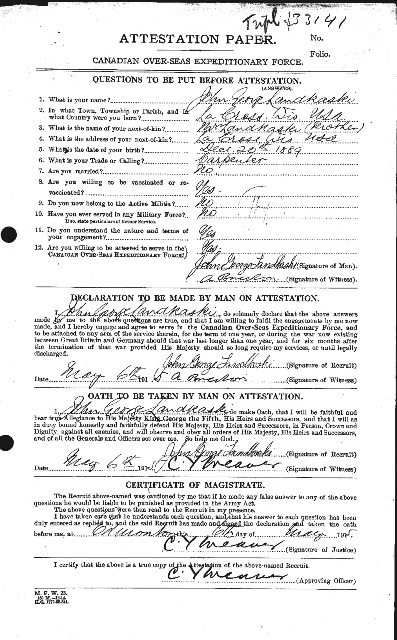 Tripl 33141
ATTESTATION PAPER.
No.
Folio.
CANADIAN OVER-SEAS EXPEDITIONARY FORCE.
QUESTIONS TO BE PUT BEFORE ATTESTATION.
(ANSWERS)
1. What is your name? John George Landkaski
2. In what Town, Township or Parish, and in
what Country were you born? La Cross, Wis USA
3. What is the name of your next-of-kin? Landkaski (Brother)
4. What is the address of your next-of-kin? La Cross Wis
5. What is the date of your birth? 20th 1889
6. What is your Trade or Calling? Carpenter
7. Are you married? No
8. Are you willing to be vaccinated or re-
vaccinated? Yes
9. Do you now belong to the Active Militia? No
10. Have you ever served in any Military Force? No
If so, state particulars of former Service.
11. Do you understand the nature and terms of
your engagement? Yes
12. Are you willing to be attested to serve in the
CANADIAN OVER-SEAS EXPEDITIONARY FORCE? Yes
John George Landkaski (Signature of Man).
(Signature of Witness).
DECLARATION TO BE MADE BY MAN ON ATTESTATION.
I, John George Landkaski, do solemnly declare that the above answers
made by me to the above questions are true, and that I am willing to fulfil the engagements by me now
made, and I hereby engage and agree to serve in the Canadian Over-Seas Expeditionary Force, and
to be attached to any arm of the service therein, for the term of one year, or during the war now existing
between Great Britain and Germany should that war last longer than one year, and for six months after
the termination of that war provided His Majesty should so long require my services, or until legally
discharged.
John George Landkaski (Signature of Recruit)
Date May 6th 1915 (Signature of Witness)
OATH TO BE TAKEN BY MAN ON ATTESTATION.
I, John George Landkaski, do make Oath, that I will be faithful and
bear true Allegiance to His Majesty King George the Fifth, His Heirs and Successors, and that I will as
in duty bound honestly and faithfully defend His Majesty, His Heirs and Successors, in Person, Crown and
Dignity, against all enemies, and will observe and obey all orders of His Majesty, His Heirs and Successors,
and of all the Generals and Officers set over me. So help me God.
John George Landkaski (Signature of Recruit)
Date May 6th 191 C Y Weaver (Signature of Witness)
CERTIFICATE OF MAGISTRATE.
The Recruit above-named was cautioned by me that if he made any false answer to any of the above
questions he would be liable to be punished as provided in the Army Act.
The above questions were then read to the Recruit in my presence.
I have taken care that he understands each question, and that his answer to each question has been
duly entered as replied to, and the said Recruit has made and signed the declaration and taken the oath
before me, at Edmonton this 6th day of May 1915.
C Y Weaver (Signature of Justice)
I certify that the above is a true copy of the Attestation of the above-named Recruit.
C Y Weaver (Approving Officer)
M. F. W. 23.